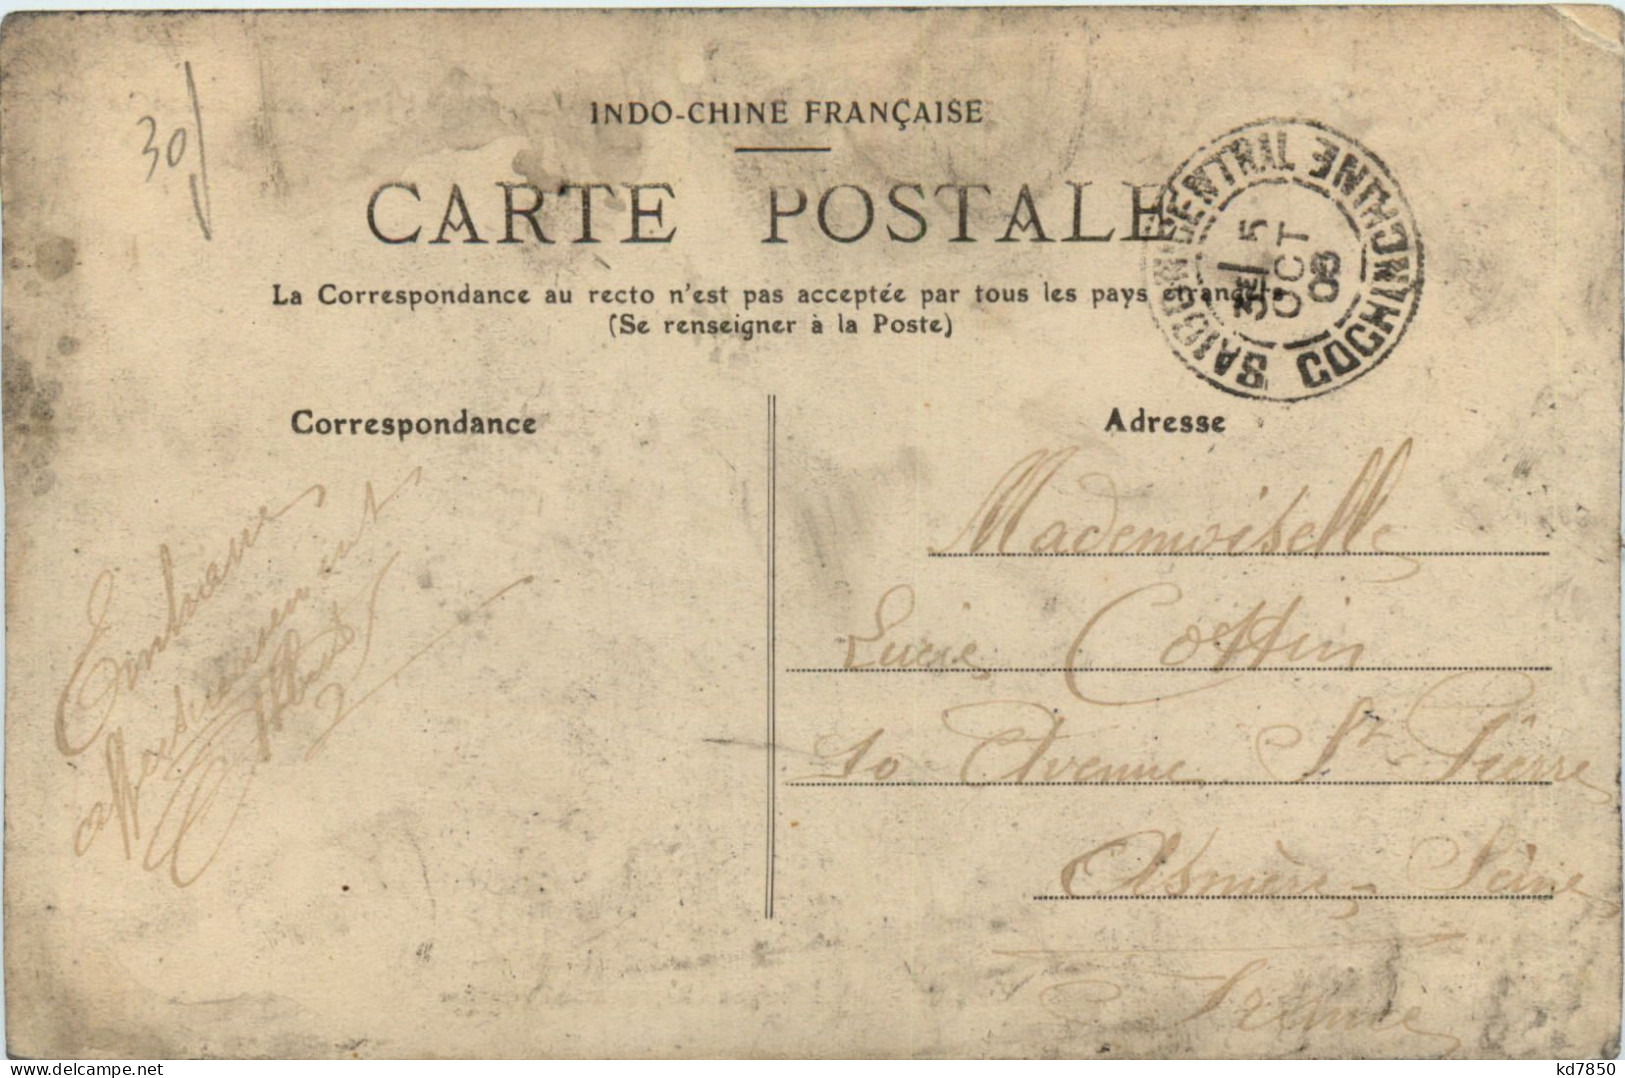 30/
INDO-CHINE FRANÇAISE
CARTE POSTALE
La Correspondance au recto n'est pas acceptée par tous les pays étrangers
(Se renseigner à la Poste)
SAIGON CENTRAL COCHINCHINE
5
OCT
08
Correspondance
Adresse
Mademoiselle
Lucie Cottin
10 Avenue St Pierre
Asnières - Seine
France
affectueusement
kd7850